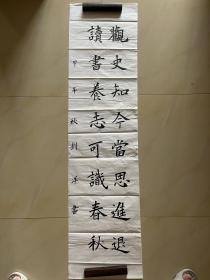 觀史知今當思進退
讀書養志可識春秋
甲午秋劉洋書